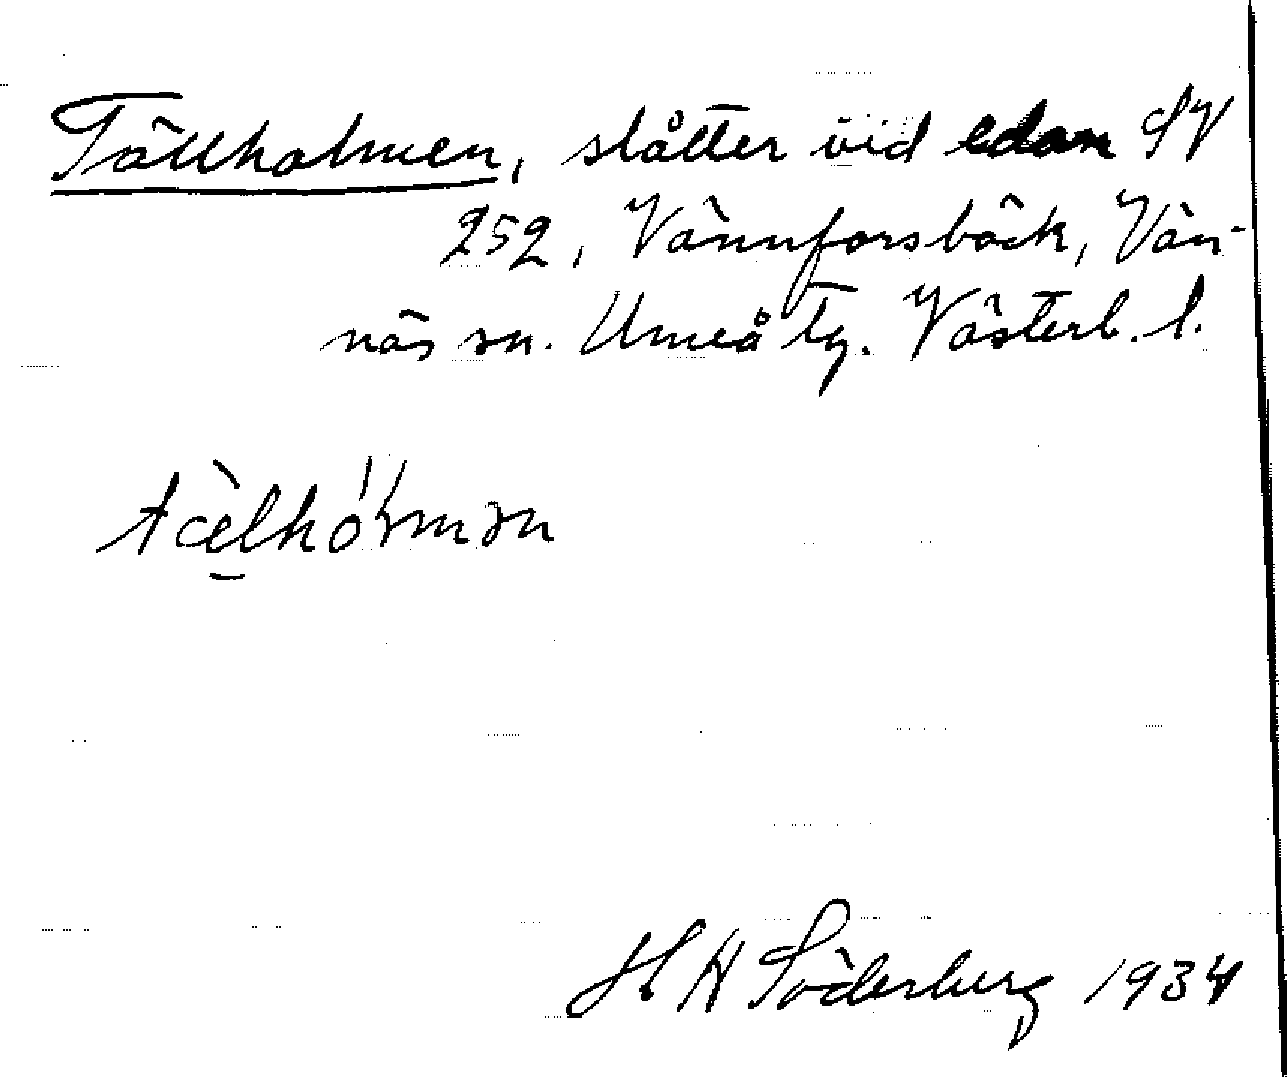 Tällholmen, slåtter vid edan SV
252, Vännforsbäck, Vän-
näs sn. Umeå tg. Västerb. l.
H H Söderberg 1934